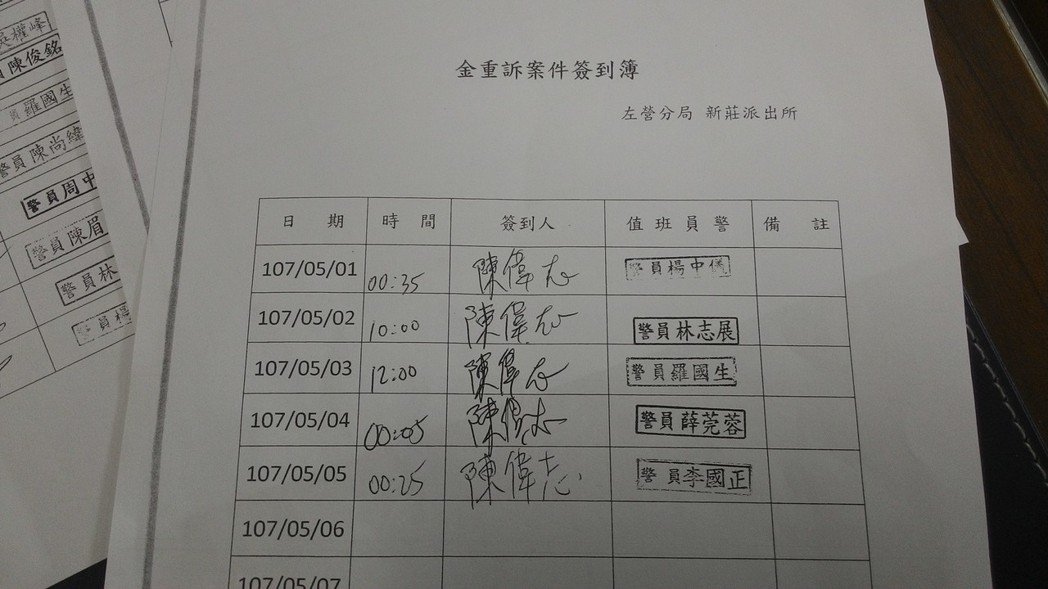 金重訴案件簽到簿
左營分局 新莊派出所
日 期 時 間 簽到人 值 班 員 警 備 註
107/05/01 00:35 陳偉志 警員楊中儀
107/05/02 10:00 陳偉志 警員林志展
107/05/03 12:00 陳偉志 警員羅國生
107/05/04 00:05 陳偉志 警員薛莞蓉
107/05/05 00:25 陳偉志 警員李國正
107/05/06
107/05/07
吳權峰
陳俊銘
員羅國生
警員陳尚緯
警員周中
警員陳眉
警員林
警員楊